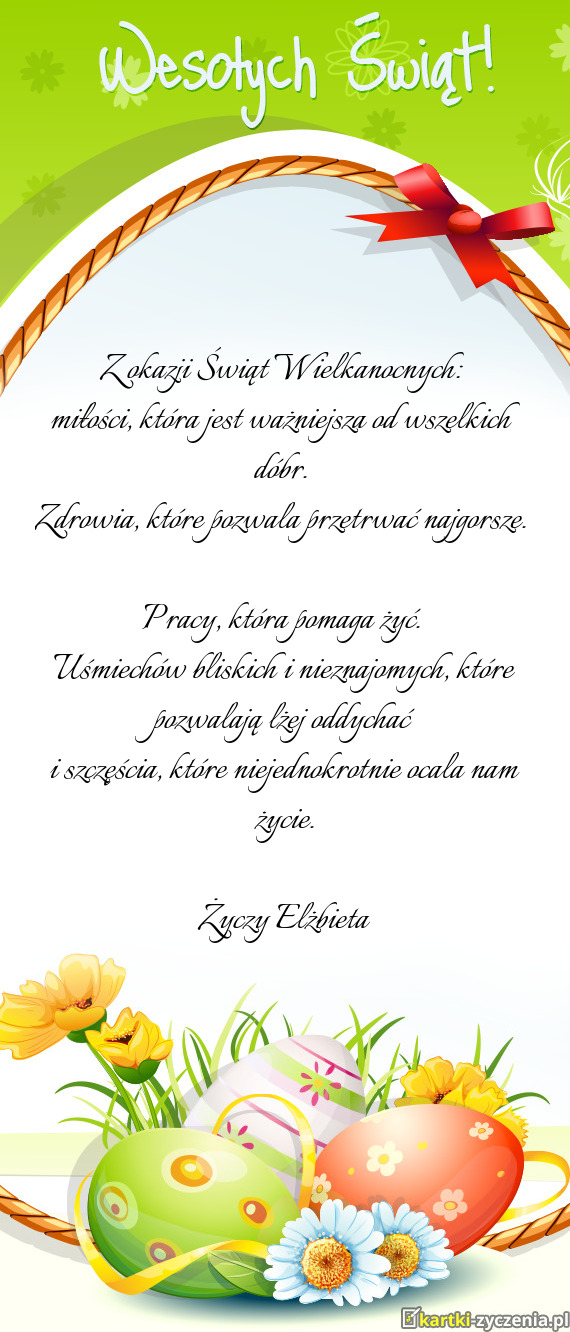 Wesołych Świąt!
Z okazji Świąt Wielkanocnych:
miłości, która jest ważniejsza od wszelkich
dóbr.
Zdrowia, które pozwala przetrwać najgorsze.
Pracy, która pomaga żyć.
Uśmiechów bliskich i nieznajomych, które
pozwalają lżej oddychać
i szczęścia, które niejednokrotnie ocala nam
życie.
Życzy Elżbieta
kartki-zyczenia.pl